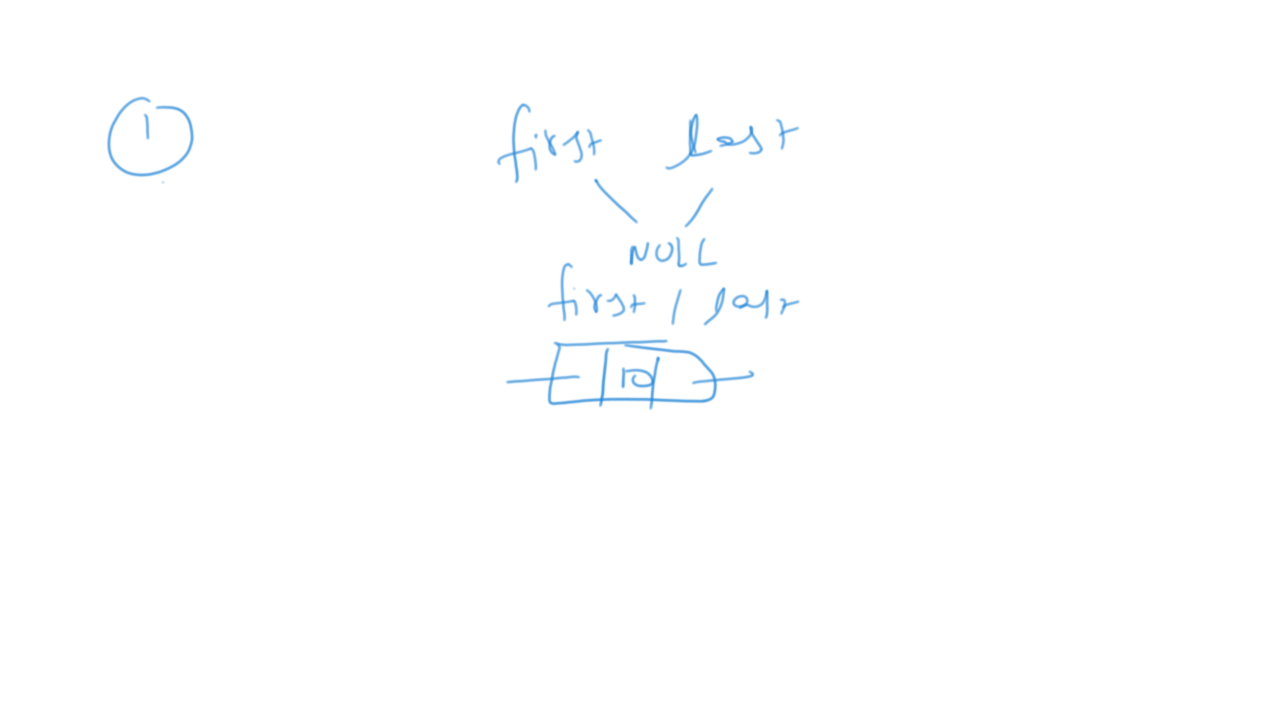 1
first last
NULL
first / last
10